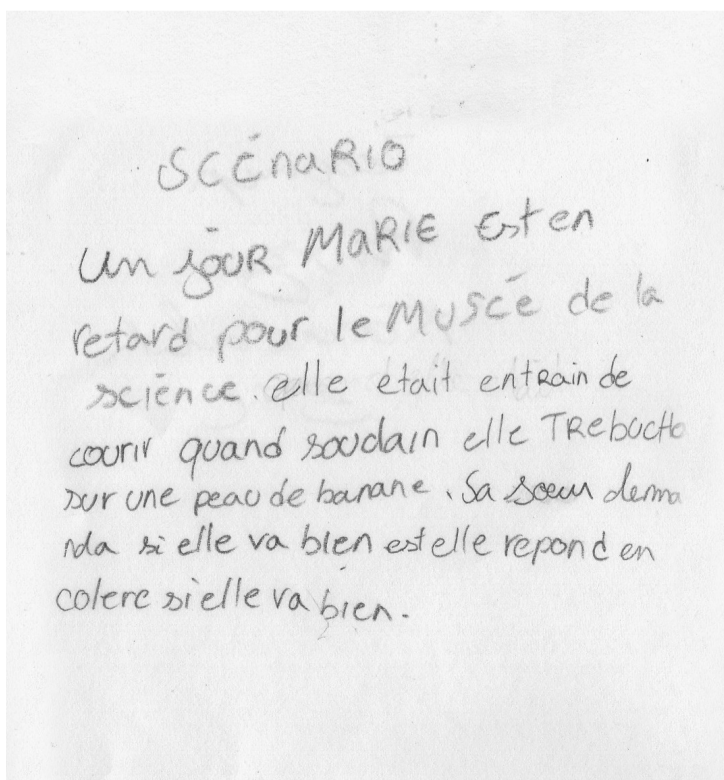 SCÉnaRIO
un jouR MaRIE Est en
retard pour le MUScé de la
sciènce. elle etait entRain de
courir quand soudain elle TRebucha
sur une peau de banane. Sa sœur dema
nda si elle va bien est elle repond en
colere si elle va bien.